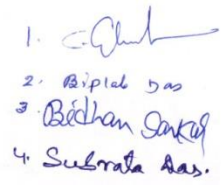 1.
2. Biplab Das
3 Bidhan Sarkar
4. Subrata Das.